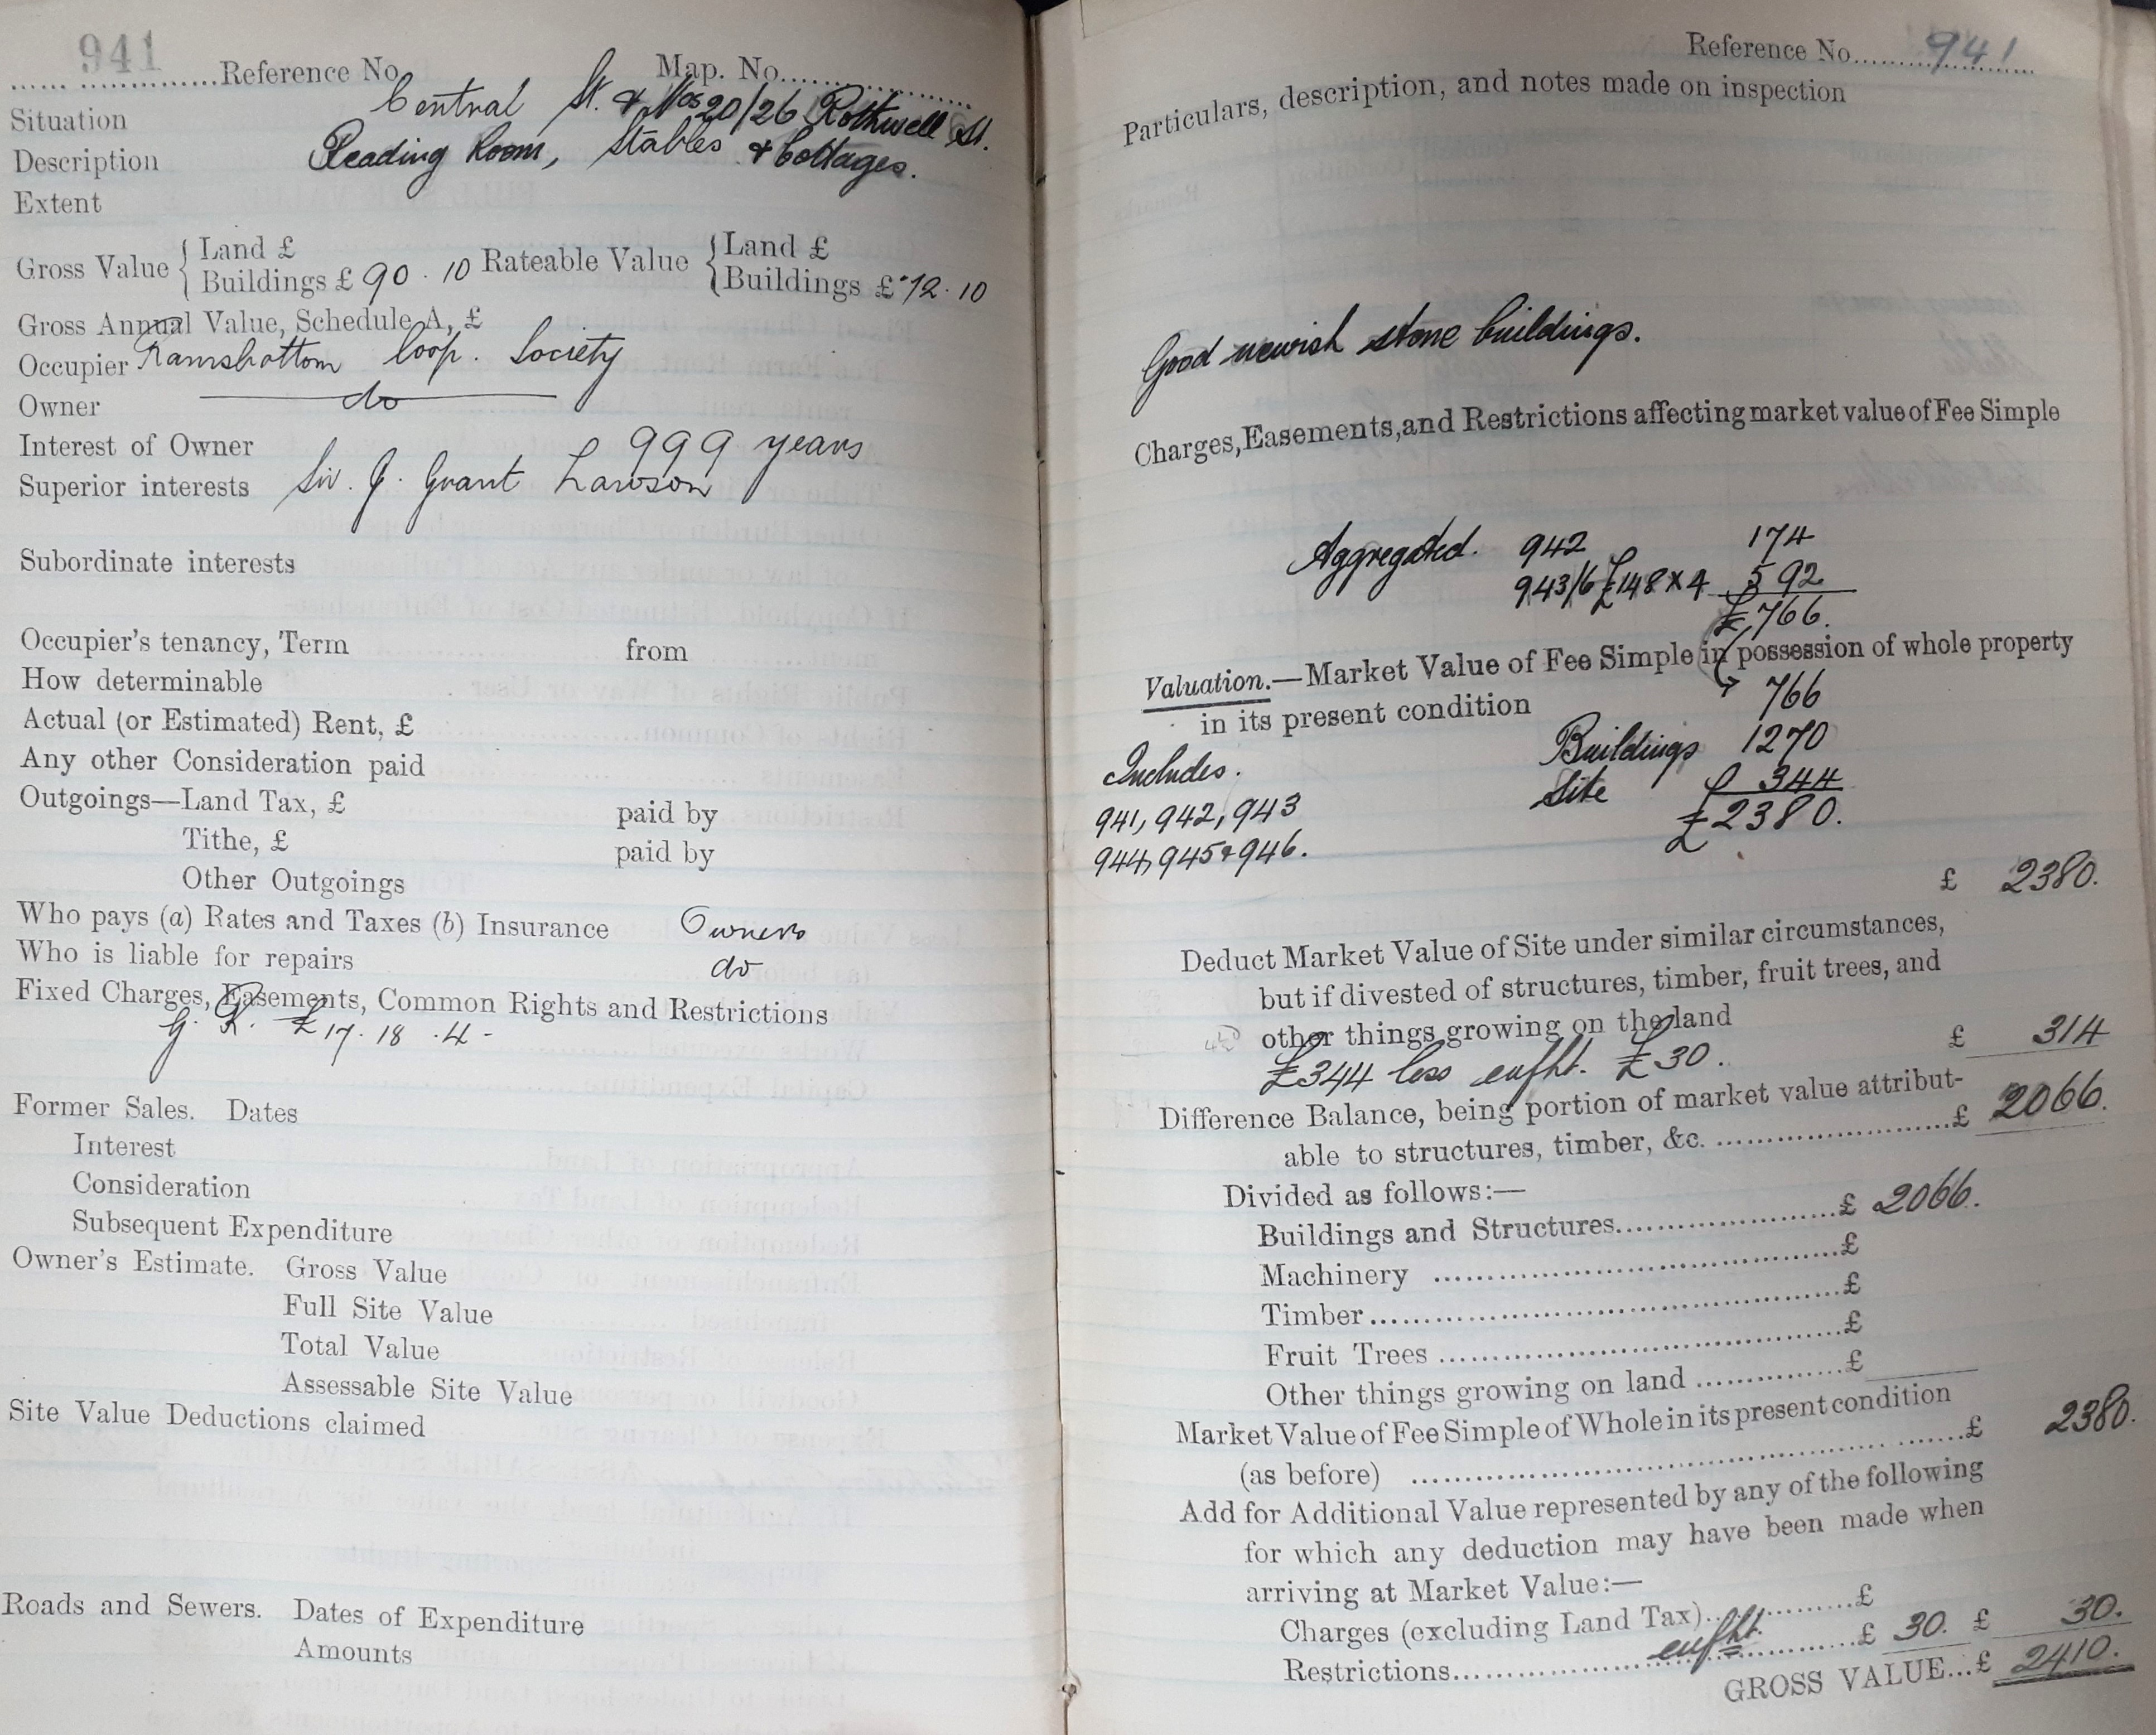 941 Reference No. Map. No.
Situation Central St. & Nos 20/26 Rothwell St.
Description Reading Room, Stables & Cottages.
Extent
Gross Value { Land £ Rateable Value { Land £
Buildings £ 90 . 10 Buildings £ 72 . 10
Gross Annual Value, Schedule A, £
Occupier Ramsbottom Coop. Society
Owner do
Interest of Owner 999 years
Superior interests Sir. J. Grant Lawson
Subordinate interests
Occupier's tenancy, Term from
How determinable
Actual (or Estimated) Rent, £
Any other Consideration paid
Outgoings—Land Tax, £ paid by
Tithe, £ paid by
Other Outgoings
Who pays (a) Rates and Taxes (b) Insurance Owners
Who is liable for repairs do
Fixed Charges, Easements, Common Rights and Restrictions
G. R. £17 . 18 . 4 -
Former Sales. Dates
Interest
Consideration
Subsequent Expenditure
Owner's Estimate. Gross Value
Full Site Value
Total Value
Assessable Site Value
Site Value Deductions claimed
Roads and Sewers. Dates of Expenditure
Amounts
Reference No. 941
Particulars, description, and notes made on inspection
Good newish stone buildings.
Charges, Easements, and Restrictions affecting market value of Fee Simple
Aggregated. 942 174
943/6 £148 x 4 592
£766.
Valuation.—Market Value of Fee Simple in possession of whole property
in its present condition 766
Includes. Buildings 1270
941, 942, 943 Site 344
944, 945 & 946. £2380.
£ 2380.
Deduct Market Value of Site under similar circumstances,
but if divested of structures, timber, fruit trees, and
other things growing on the land £ 314
£344 less enfht. £30.
Difference Balance, being portion of market value attribut-
able to structures, timber, &c. £ 2066.
Divided as follows:—
Buildings and Structures £ 2066.
Machinery £
Timber £
Fruit Trees £
Other things growing on land £
Market Value of Fee Simple of Whole in its present condition
(as before) £ 2380.
Add for Additional Value represented by any of the following
for which any deduction may have been made when
arriving at Market Value:—
Charges (excluding Land Tax) £
Restrictions enfht. £ 30. £ 30.
GROSS VALUE...£ 2410.